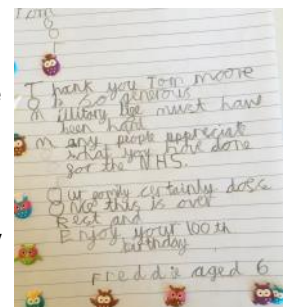 Tom
Thank you Tom moore
O h so generous
Military life must have
been hard
Many people appreciate
what you have done
for the NHS.
Our family certainly does
Once this is over
Rest and
Enjoy your 100th
birthday
Freddie aged 6